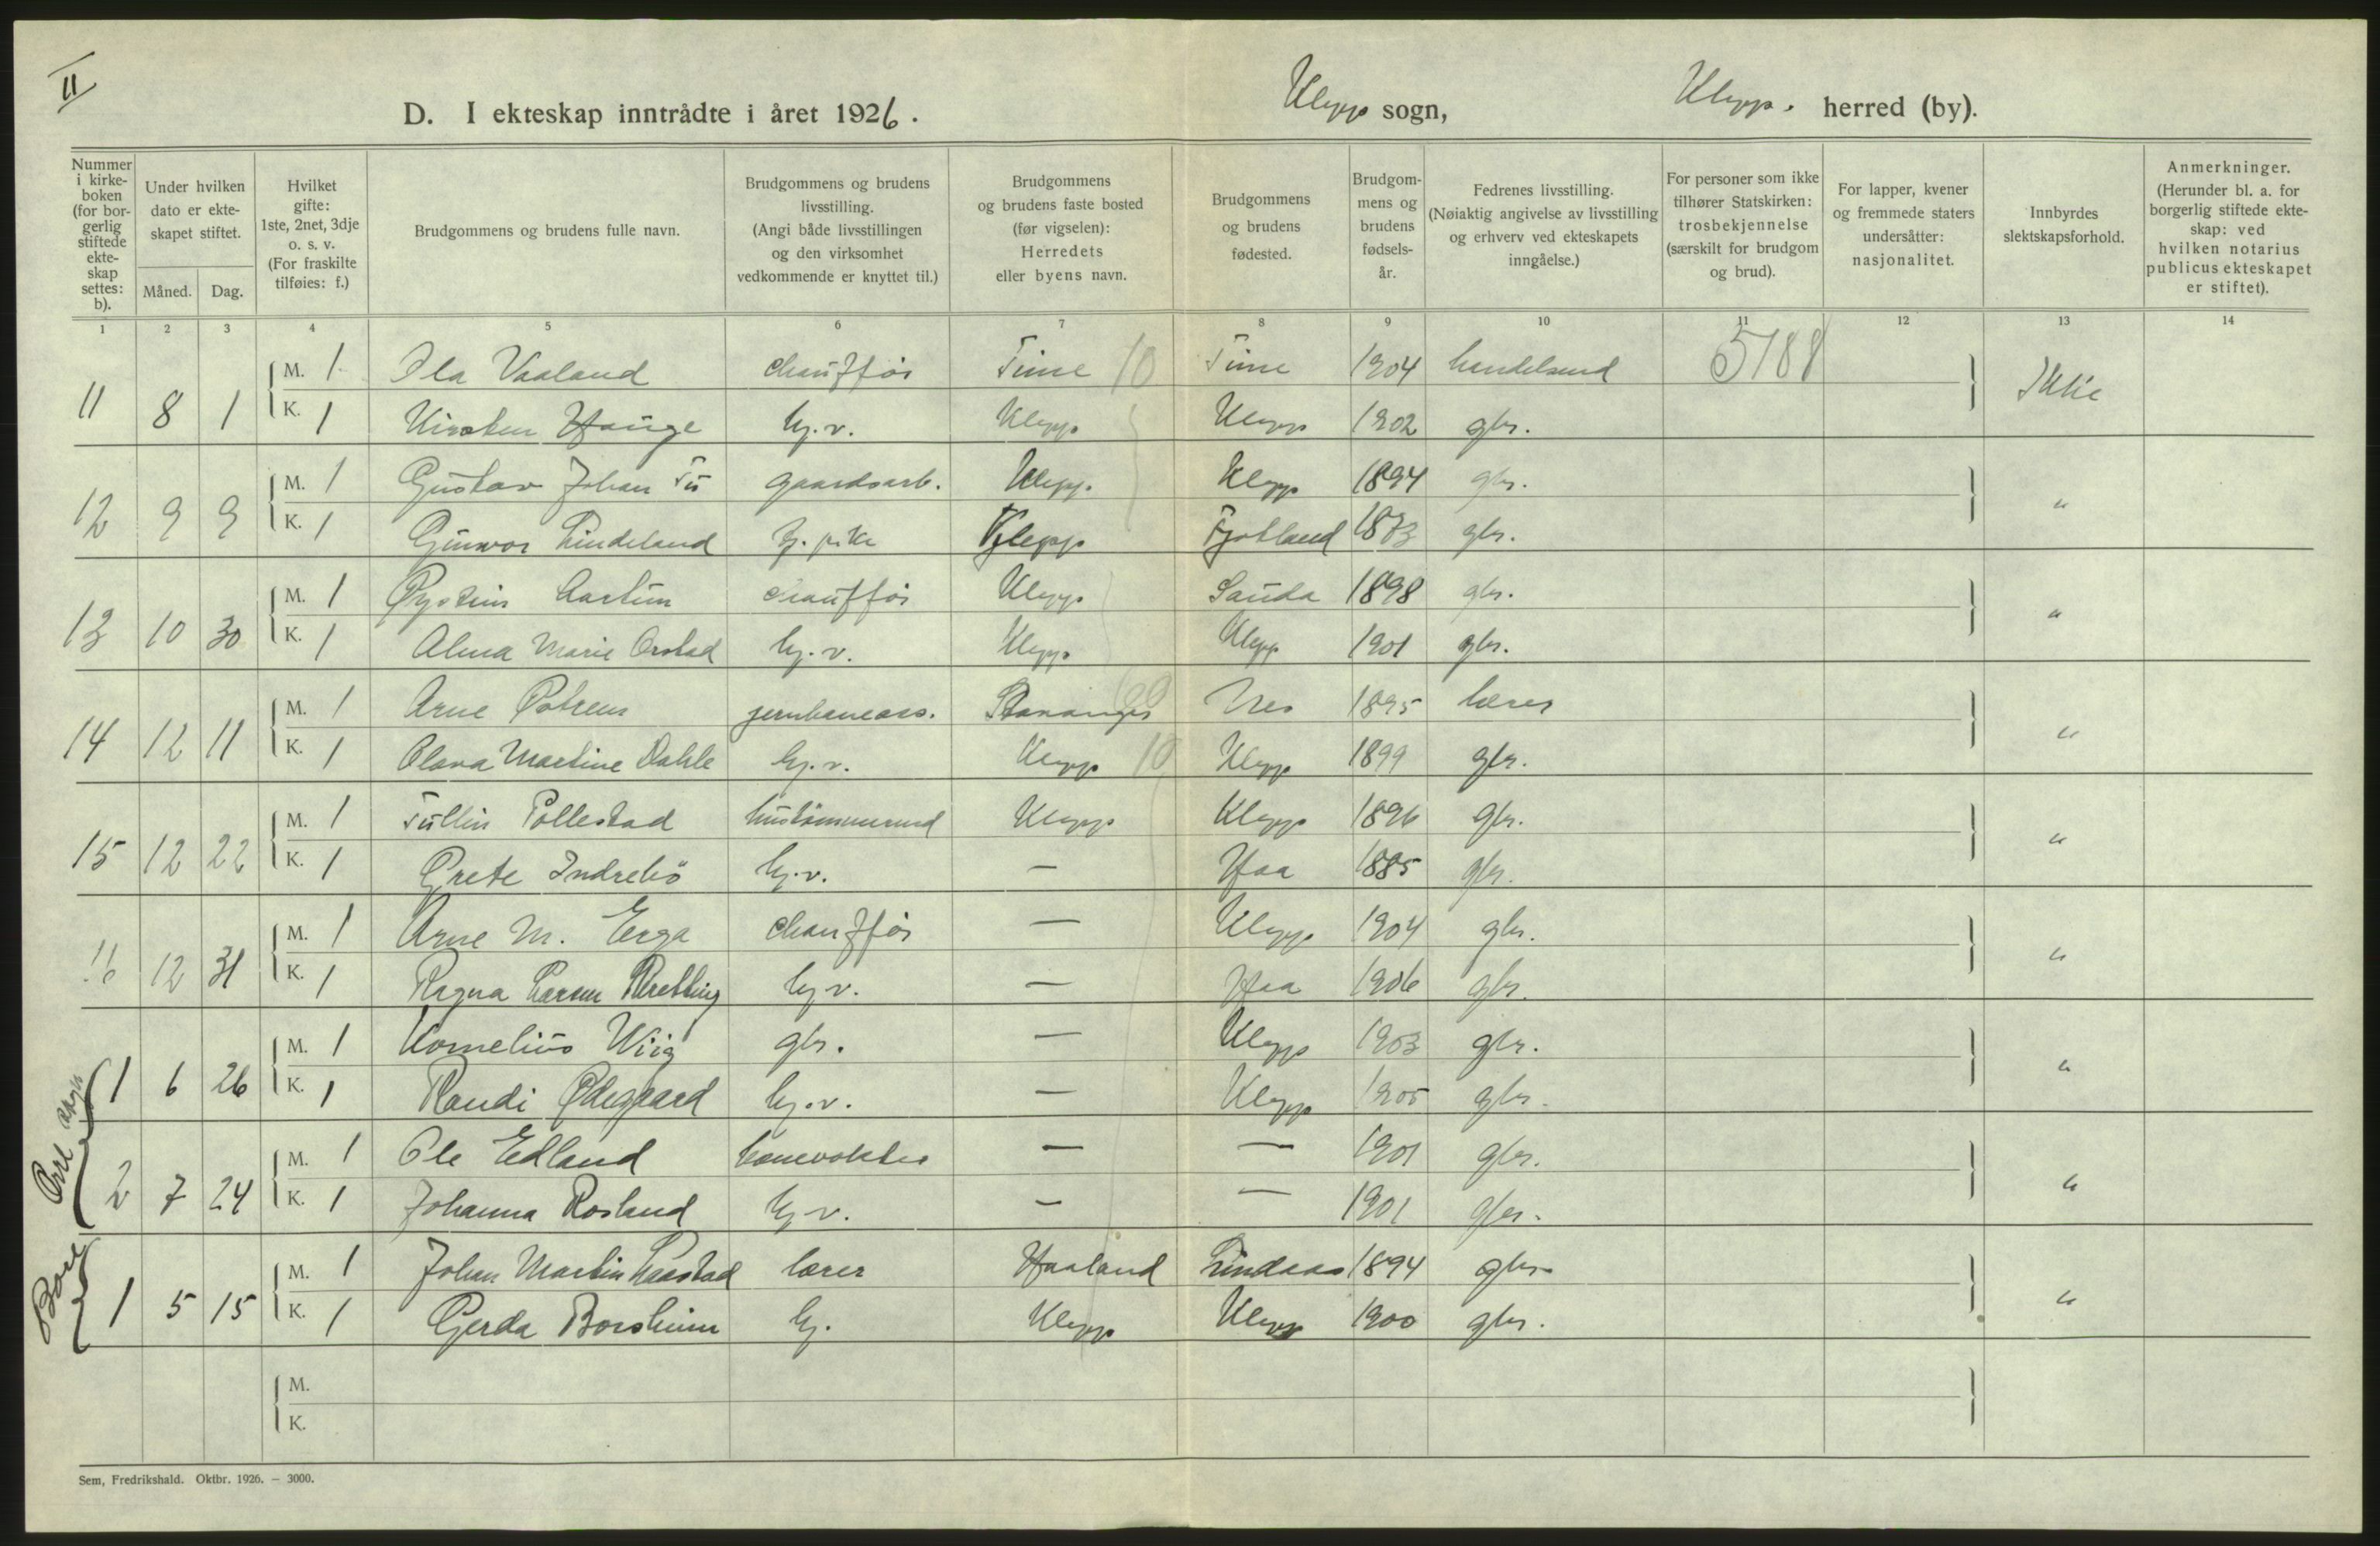 II
D. I ekteskap inntrådte i året 1926. Klepp sogn, Klepp. herred (by).
Nummer i kirke-boken (for bor-gerlig stiftede ekte-skap settes: b).
Under hvilken dato er ekte-skapet stiftet.
Måned. Dag.
Hvilket gifte: 1ste, 2net, 3dje o. s. v. (For fraskilte tilføies: f.)
Brudgommens og brudens fulle navn.
Brudgommens og brudens livsstilling. (Angi både livsstillingen og den virksomhet vedkommende er knyttet til.)
Brudgommens og brudens faste bosted (før vigselen): Herredets eller byens navn.
Brudgommens og brudens fødested.
Brudgom-mens og brudens fødsels-år.
Fedrenes livsstilling. (Nøiaktig angivelse av livsstilling og erhverv ved ekteskapets inngåelse.)
For personer som ikke tilhører Statskirken: trosbekjennelse (særskilt for brudgom og brud).
For lapper, kvener og fremmede staters undersåtter: nasjonalitet.
Innbyrdes slektskapsforhold.
Anmerkninger. (Herunder bl. a. for borgerlig stiftede ekte-skap: ved hvilken notarius publicus ekteskapet er stiftet).
1 2 3 4 5 6 7 8 9 10 11 12 13 14
M. 1 Ola Vaaland chauffør Time 10 Time 1904 handelsmd 5188
11 8 1 K. 1 Kirsten Hauge hj.v. Klepp Klepp 1902 gbr. Ikke
M. 1 Gustav Johan Tu gaardsarb. Klepp. Klepp 1894 gbr.
12 9 9 K. 1 Gunvor Lindeland tj. pike Klepp Fjotland 1873 gbr. "
M. 1 Øystein Hartun chauffør Klepp Sauda 1898 gbr.
13 10 30 K. 1 Alma Marie Orstad hj.v. Klepp Klepp 1901 gbr. "
M. 1 Arne jernbaneass. Stavanger Nes 1895 lærer
14 12 11 K. 1 Olava Martine Dahle hj.v. Klepp 10 Klepp 1899 gbr. "
M. 1 Tullin Pollestad hustømmermd Klepp Klepp 1896 gbr.
15 12 22 K. 1 Grete Indrebö hj.v. — Haa 1885 gbr. "
M. 1 Arne M. Erga chauffør — Klepp 1904 gbr.
16 12 31 K. 1 Ragna Karen hj.v. — Haa 1906 gbr. "
M. 1 Kornelius Wiig gbr. — Klepp 1903 gbr.
Orre sogn 1 6 26 K. 1 Randi Ødegaard hj.v. — Klepp 1905 gbr. "
M. 1 Ole Edland banevokter — — 1901 gbr.
2 7 24 K. 1 Johanna Rosland hj.v. — — 1901 gbr. "
M. 1 Johan Martin lærer Haaland Lindaas 1894 gbr.
Bore 1 5 15 K. 1 Gerda Borsheim hj. Klepp Klepp 1900 gbr. "
M.
K.
Sem, Fredrikshald. Oktbr. 1926. — 3000.